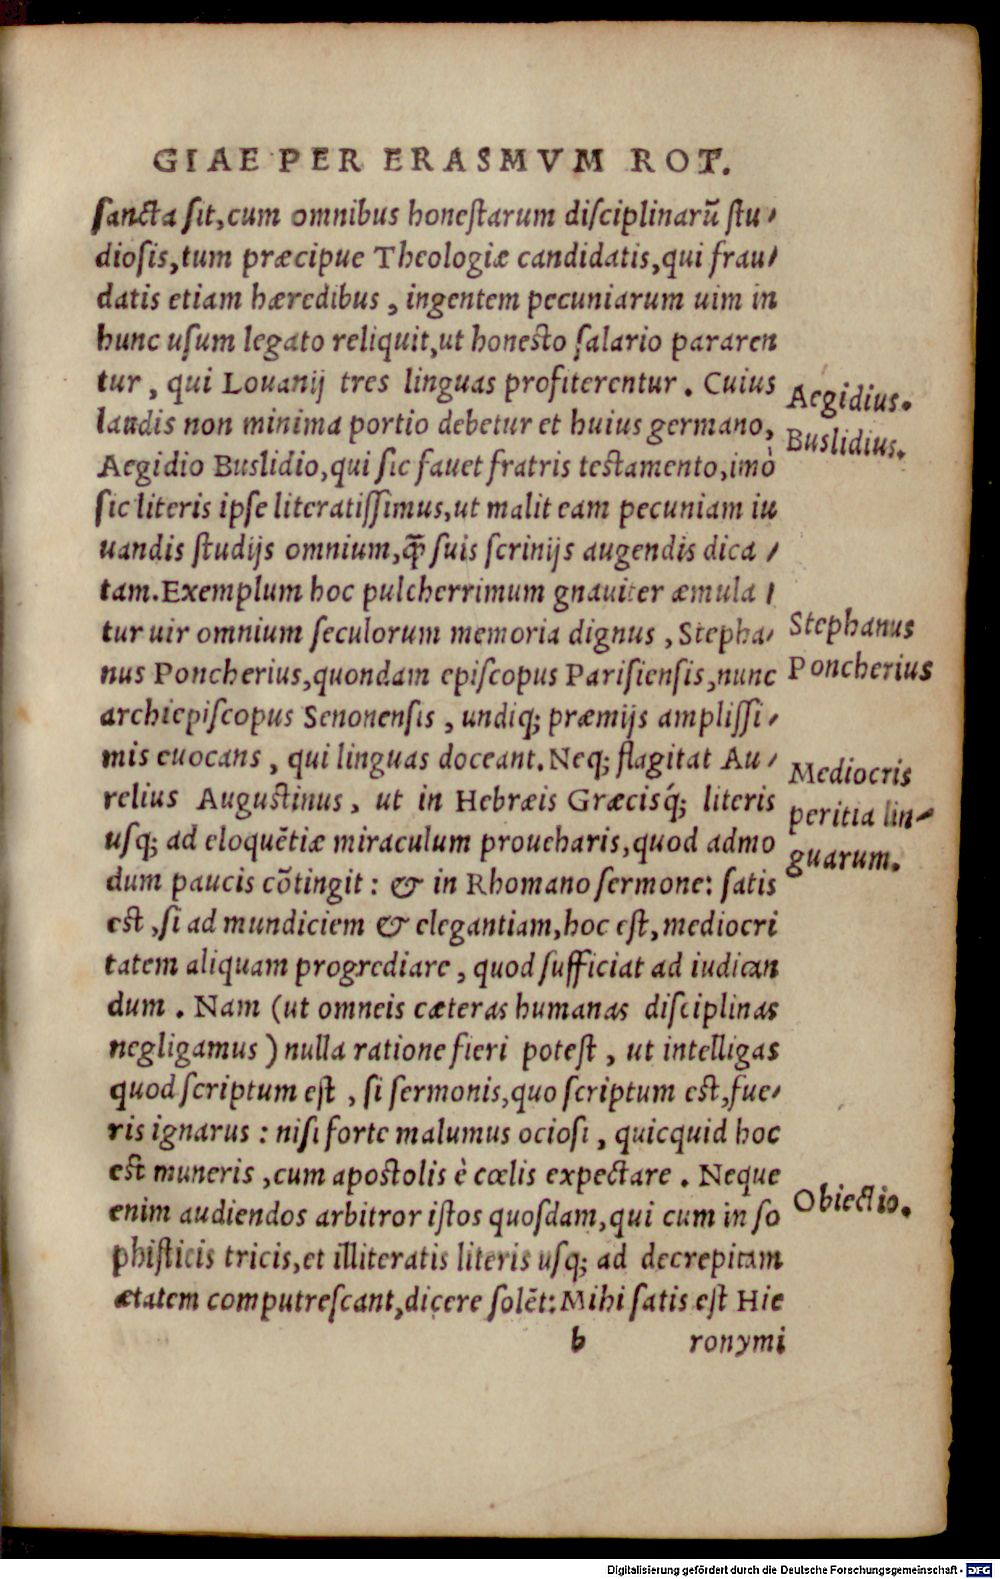 GIAE PER ERASMVM ROT.
sancta sit, cum omnibus honestarum disciplinarũ stu-
diosis, tum præcipue Theologiæ candidatis, qui frau-
datis etiam hæredibus, ingentem pecuniarum uim in
hunc usum legato reliquit, ut honesto salario pararen
tur, qui Louanij tres linguas profiterentur. Cuius
laudis non minima portio debetur et huius germano,
Aegidio Buslidio, qui sic fauet fratris testamento, imò
sic literis ipse literatissimus, ut malit eam pecuniam iu
uandis studijs omnium, q̃ꝫ suis scrinijs augendis dica-
tam. Exemplum hoc pulcherrimum gnauiter æmula-
tur uir omnium seculorum memoria dignus, Stepha-
nus Poncherius, quondam episcopus Parisiensis, nunc
archiepiscopus Senonensis, undiq; præmijs amplissi-
mis euocans, qui linguas doceant. Neq; flagitat Au-
relius Augustinus, ut in Hebræis Græcisq́; literis
usq; ad eloquẽtiæ miraculum proueharis, quod admo
dum paucis cõtingit: & in Rhomano sermone: satis
est, si ad mundiciem & elegantiam, hoc est, mediocri
tatem aliquam progrediare, quod sufficiat ad iudican
dum. Nam (ut omneis cæteras humanas disciplinas
negligamus) nulla ratione fieri potest, ut intelligas
quod scriptum est, si sermonis, quo scriptum est, fue-
ris ignarus: nisi forte malumus ociosi, quicquid hoc
est muneris, cum apostolis è cœlis expectare. Neque
enim audiendos arbitror istos quosdam, qui cum in so
phisticis tricis, et illiteratis literis usq; ad decrepitam
ætatem computrescant, dicere solẽt: Mihi satis est Hie
b ronymi
Aegidius.
Buslidius.
Stephanus
Poncherius
Mediocris
peritia lin-
guarum.
Obiectio.
Digitalisierung gefördert durch die Deutsche Forschungsgemeinschaft - DFG